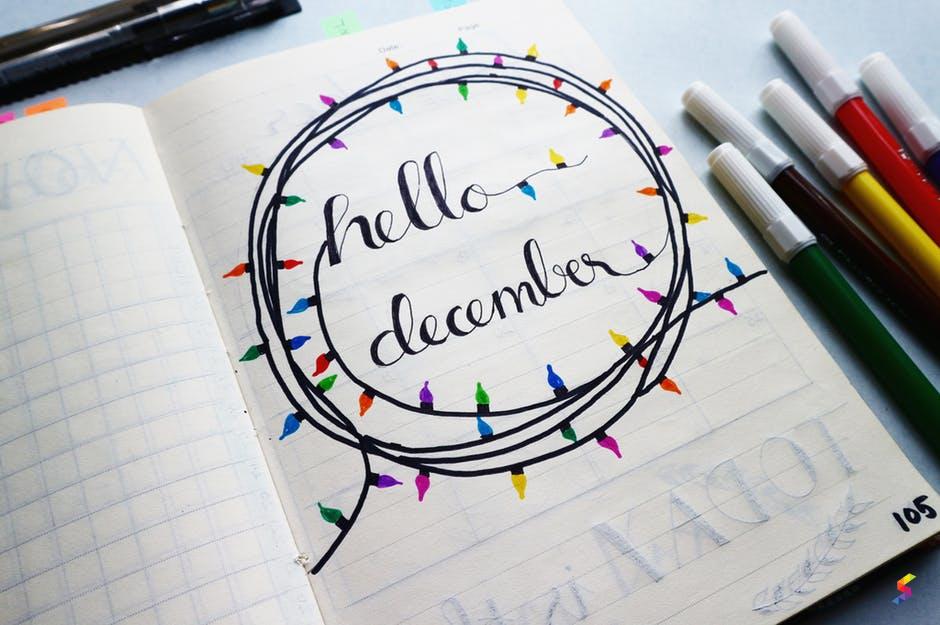 Date
Page
hello
december
NOV
105